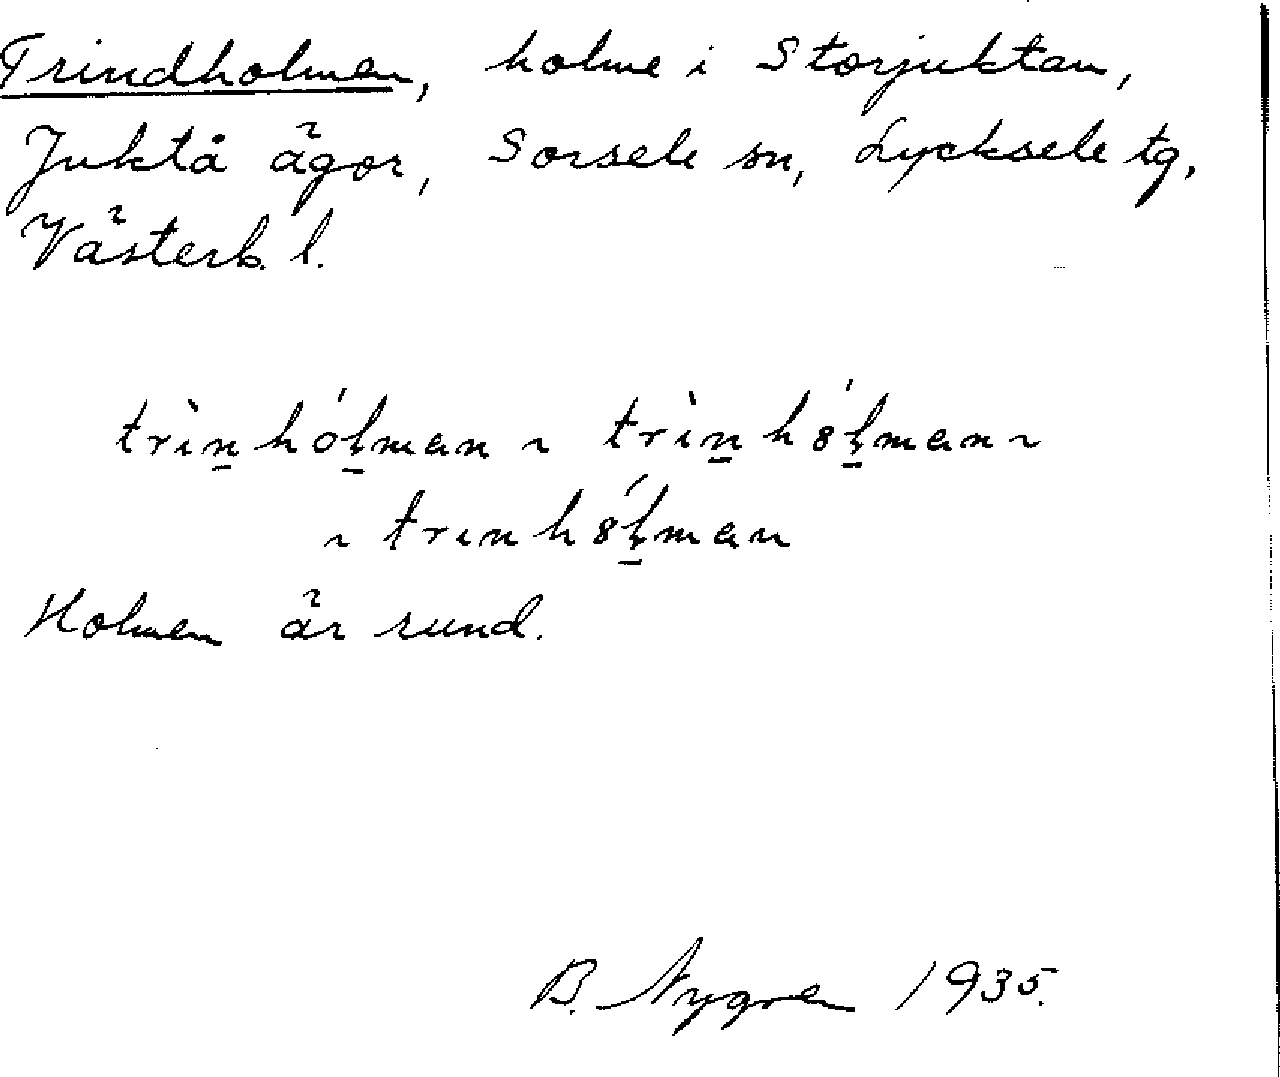 Trindholmen, holme i Storjuktan,
Juktå ägor, Sorsele sn, Lycksele tg,
Västerb. l.
trìn̠hól̠man ~ trìn̠h8́l̠man ~
~ trınh8́l̠man
Holmen är rund.
B. Nygren 1935.